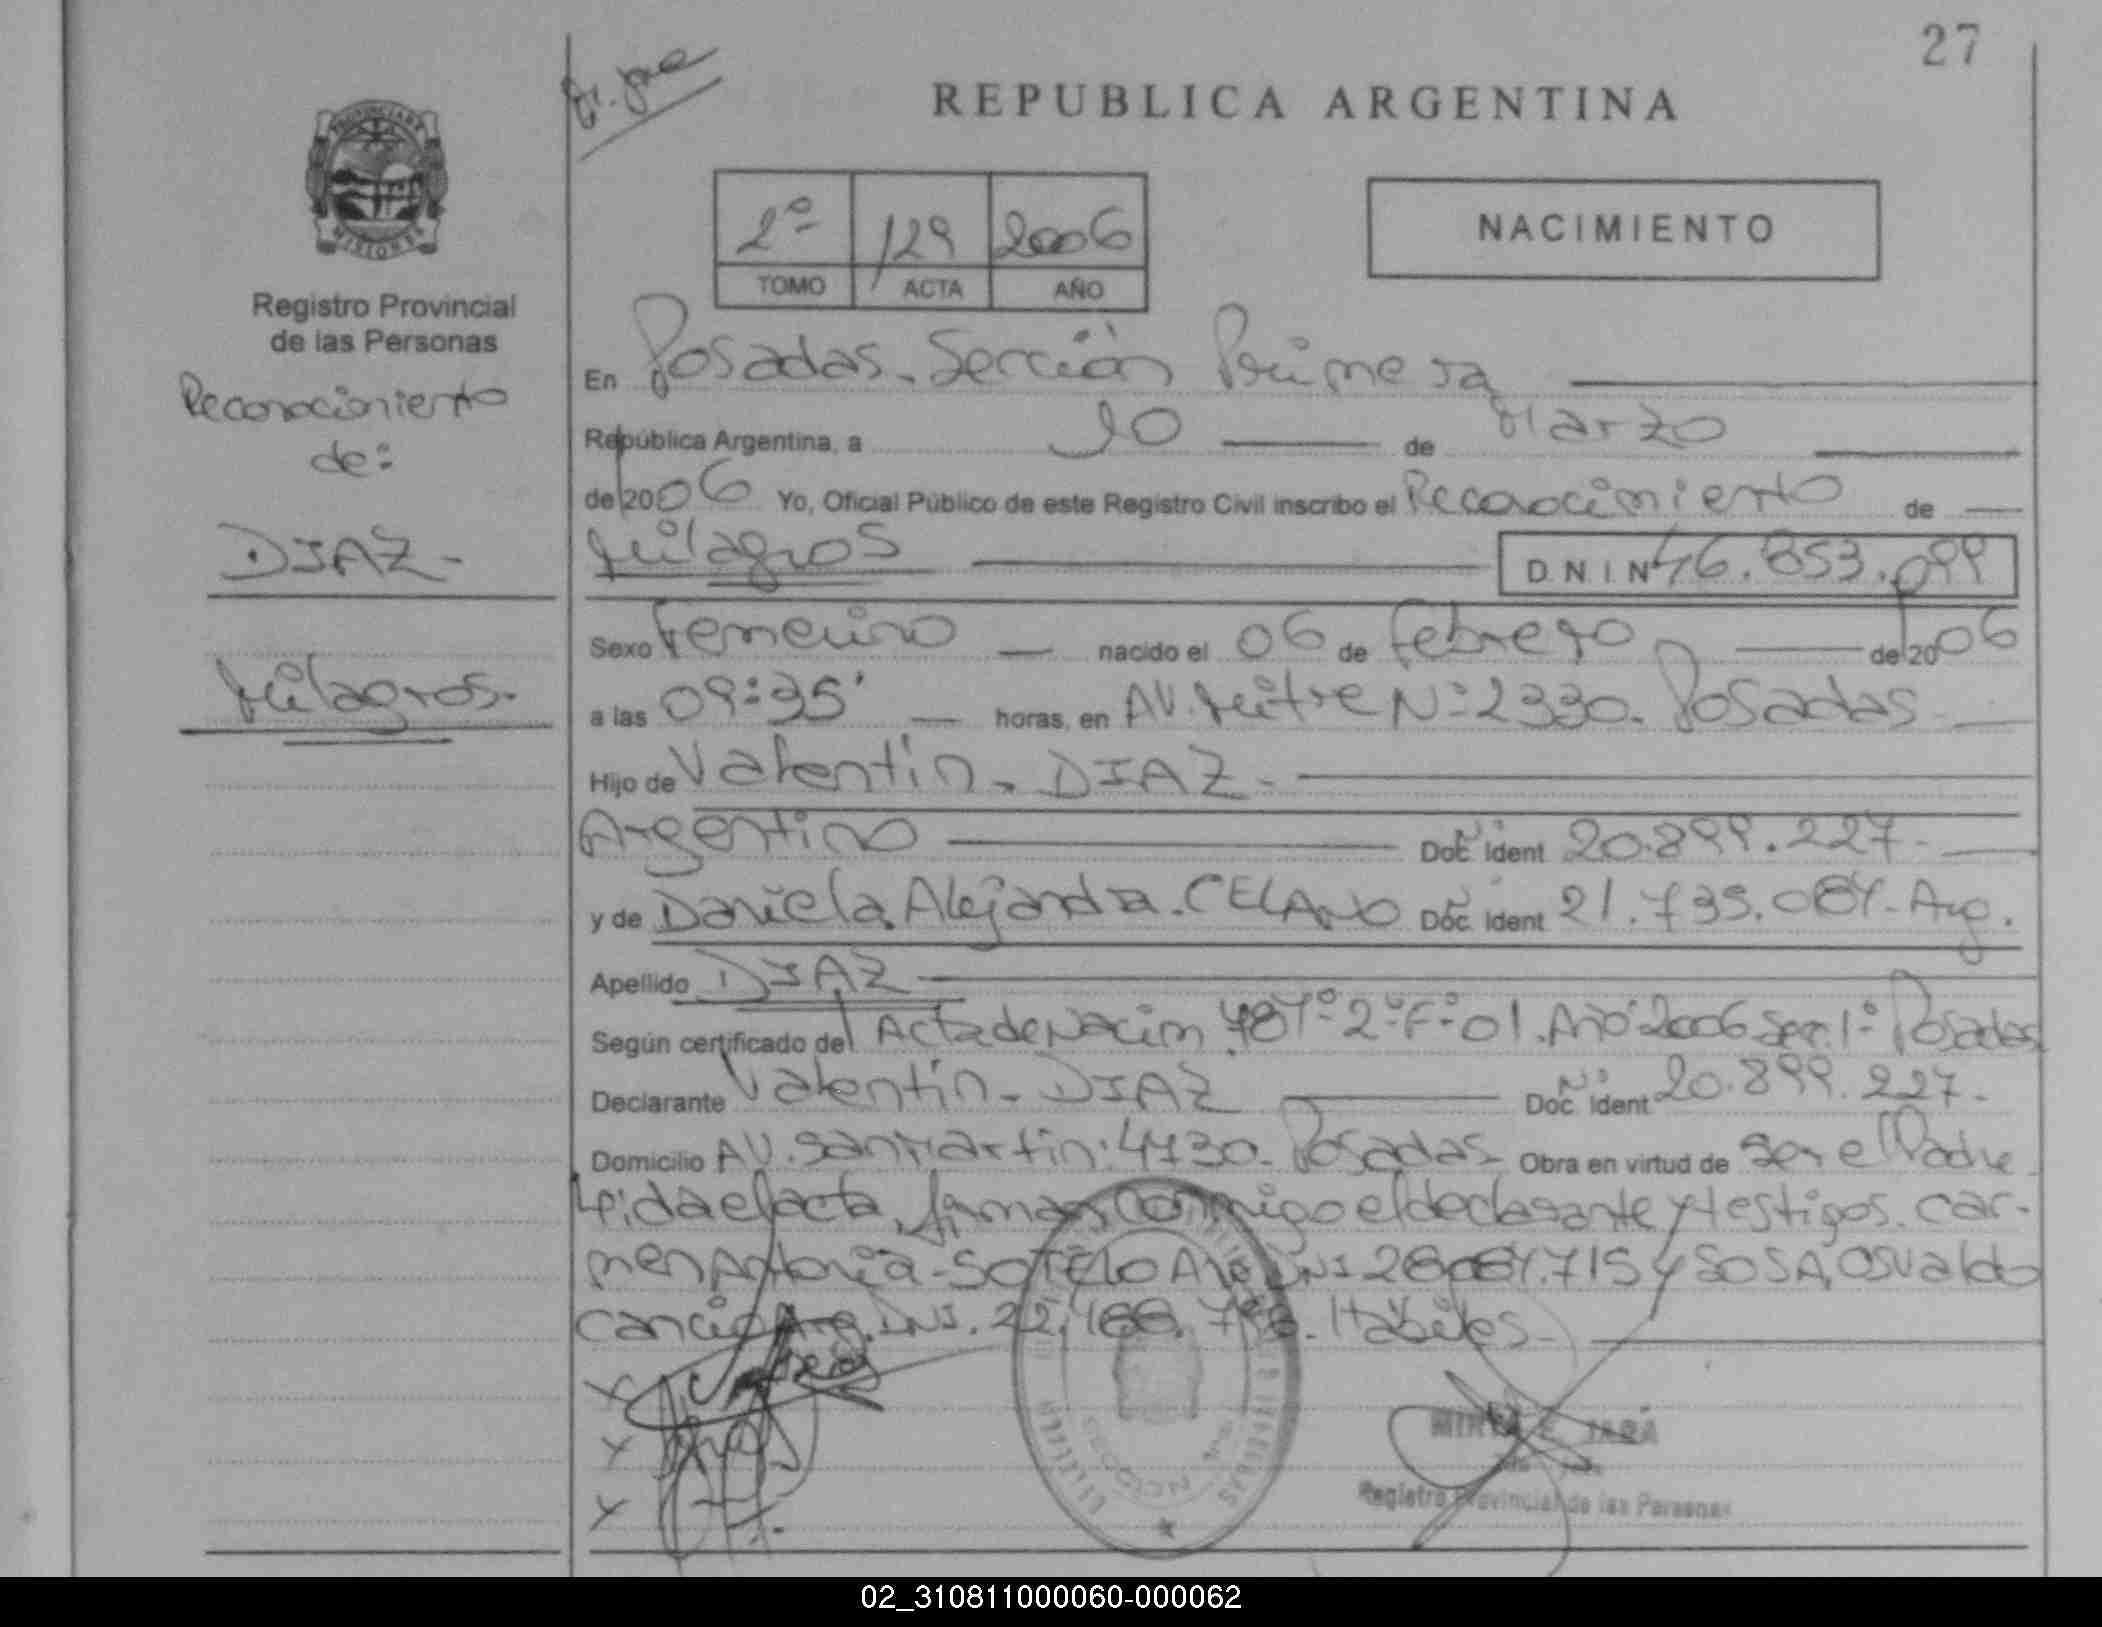 27
REPUBLICA ARGENTINA
PROVINCIA DE
MISIONES
Registro Provincial
de las Personas
Reconocimiento
de:
DIAZ-
Milagros.
2º 129 2006
TOMO ACTA AÑO
NACIMIENTO
En Posadas. Sección Primera
República Argentina, a 10 de Marzo
de 2006 Yo, Oficial Público de este Registro Civil inscribo el Reconocimiento de
Milagros D N I N 46.853.099
Sexo Femenino nacido el 06 de Febrero de 2006
a las 09:35' horas, en AV. Mitre Nº 2330. Posadas
Hijo de Valentín. DIAZ-
Argentino Doc. Ident 20.899.227-
y de Daniela Alejandra. CELANO Doc. Ident 21.735.084- Arg.
Apellido DIAZ
Según certificado del Acta de Nacim 2º Fº 01. Año 2006 Sec. 1º Posadas
Declarante Valentín- DIAZ Doc. Ident 20.899.227.
Domicilio AV. San Martín: 4730- Posadas Obra en virtud de ser el Padre
Leida el acta, firman conmigo el declarante y testigos. Car-
men Antonia- SOTELO DNI y SOSA, Osvaldo
DNI. Hábiles-
Registro Provincial de las Personas
02_310811000060-000062